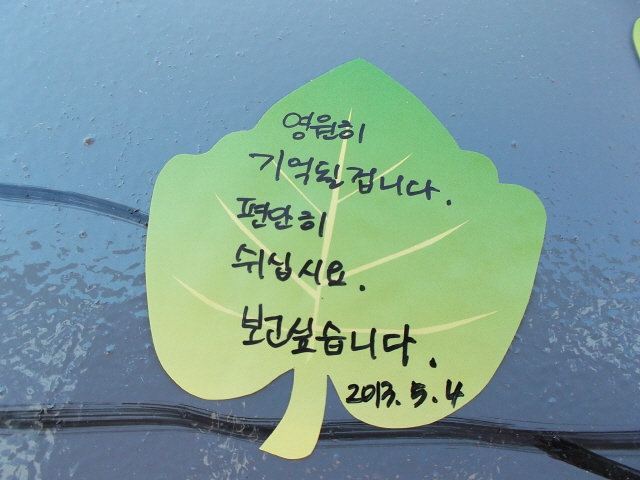 영원히
기억될겁니다.
편안히
쉬십시요.
보고싶습니다.
2013.5.4